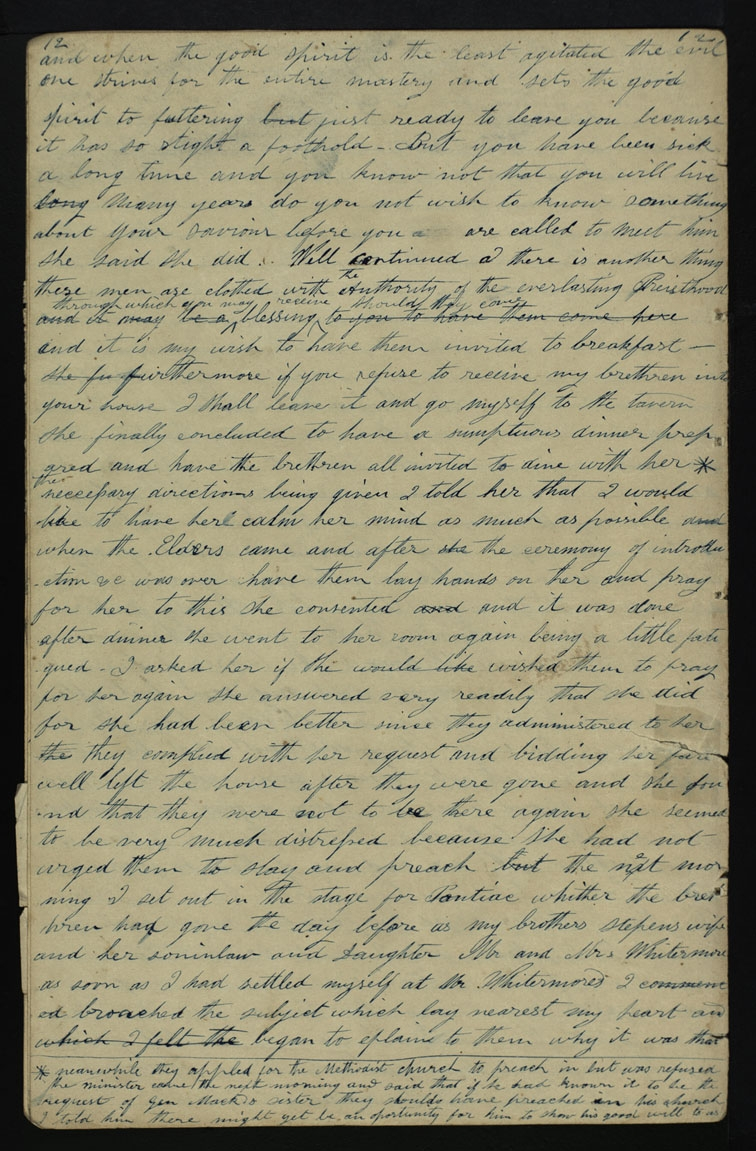 12
and when the good spirit is the least agitated the evil
one strives for the entire mastery and sets the good
spirit to fluttering but just ready to leave you because
it has so slight a foothold - But you have been sick
a long time and you know not that you will live
long many years do you not wish to know something
about your saviour before you a are called to meet him
she said she did. Well continued I there is another thing
these men are clothed with the Authority of the everlasting Preisthood
through which you may receive should they cover
and it may be a blessing to you to have them come here
and it is my wish to have them invited to breakfast —
she fu furthermore if you refuse to receive my brethren into
your house I shall leave it and go myself to the tavern
she finally concluded to have a sumptuous dinner prep
ared and have the brethren all invited to dine with her *
the neccessary directions being given I told her that I would
like to have her calm her mind as much as possible and
when the Elders came and after she the ceremony of introdu
-ction &c was over have them lay hands on her and pray
for her to this she consented and and it was done
after dinner she went to her room again being a little fati
-gued - I asked her if she would like wished them to pray
for her again she answered very readily that she did
for she had been better since they administered to her
the they complied with her request and bidding her fare
well left the house after they were gone and she fou
-nd that they were not to be there again she seemed
to be very much distressed because she had not
urged them to stay and preach but the next mor
ning I set out in the stage for Pontiac whither the bret
hren had gone the day before as my brothers stepens wife
and her soninlaw and Daughter Mr and Mrs Whitermore
as soon as I had settled myself at Mr. Whitermores I commenc
ed broached the subject which lay nearest my heart and
which I felt the began to eplain to them why it was that
* meanwhile they applied for the Methodist church to preach in but was refused
the minister came the next morning and said that if he had known it to be the
request of Gen Macks sister they should have preached in his church
I told him there might yet be an oportunity for him to show his good will to us